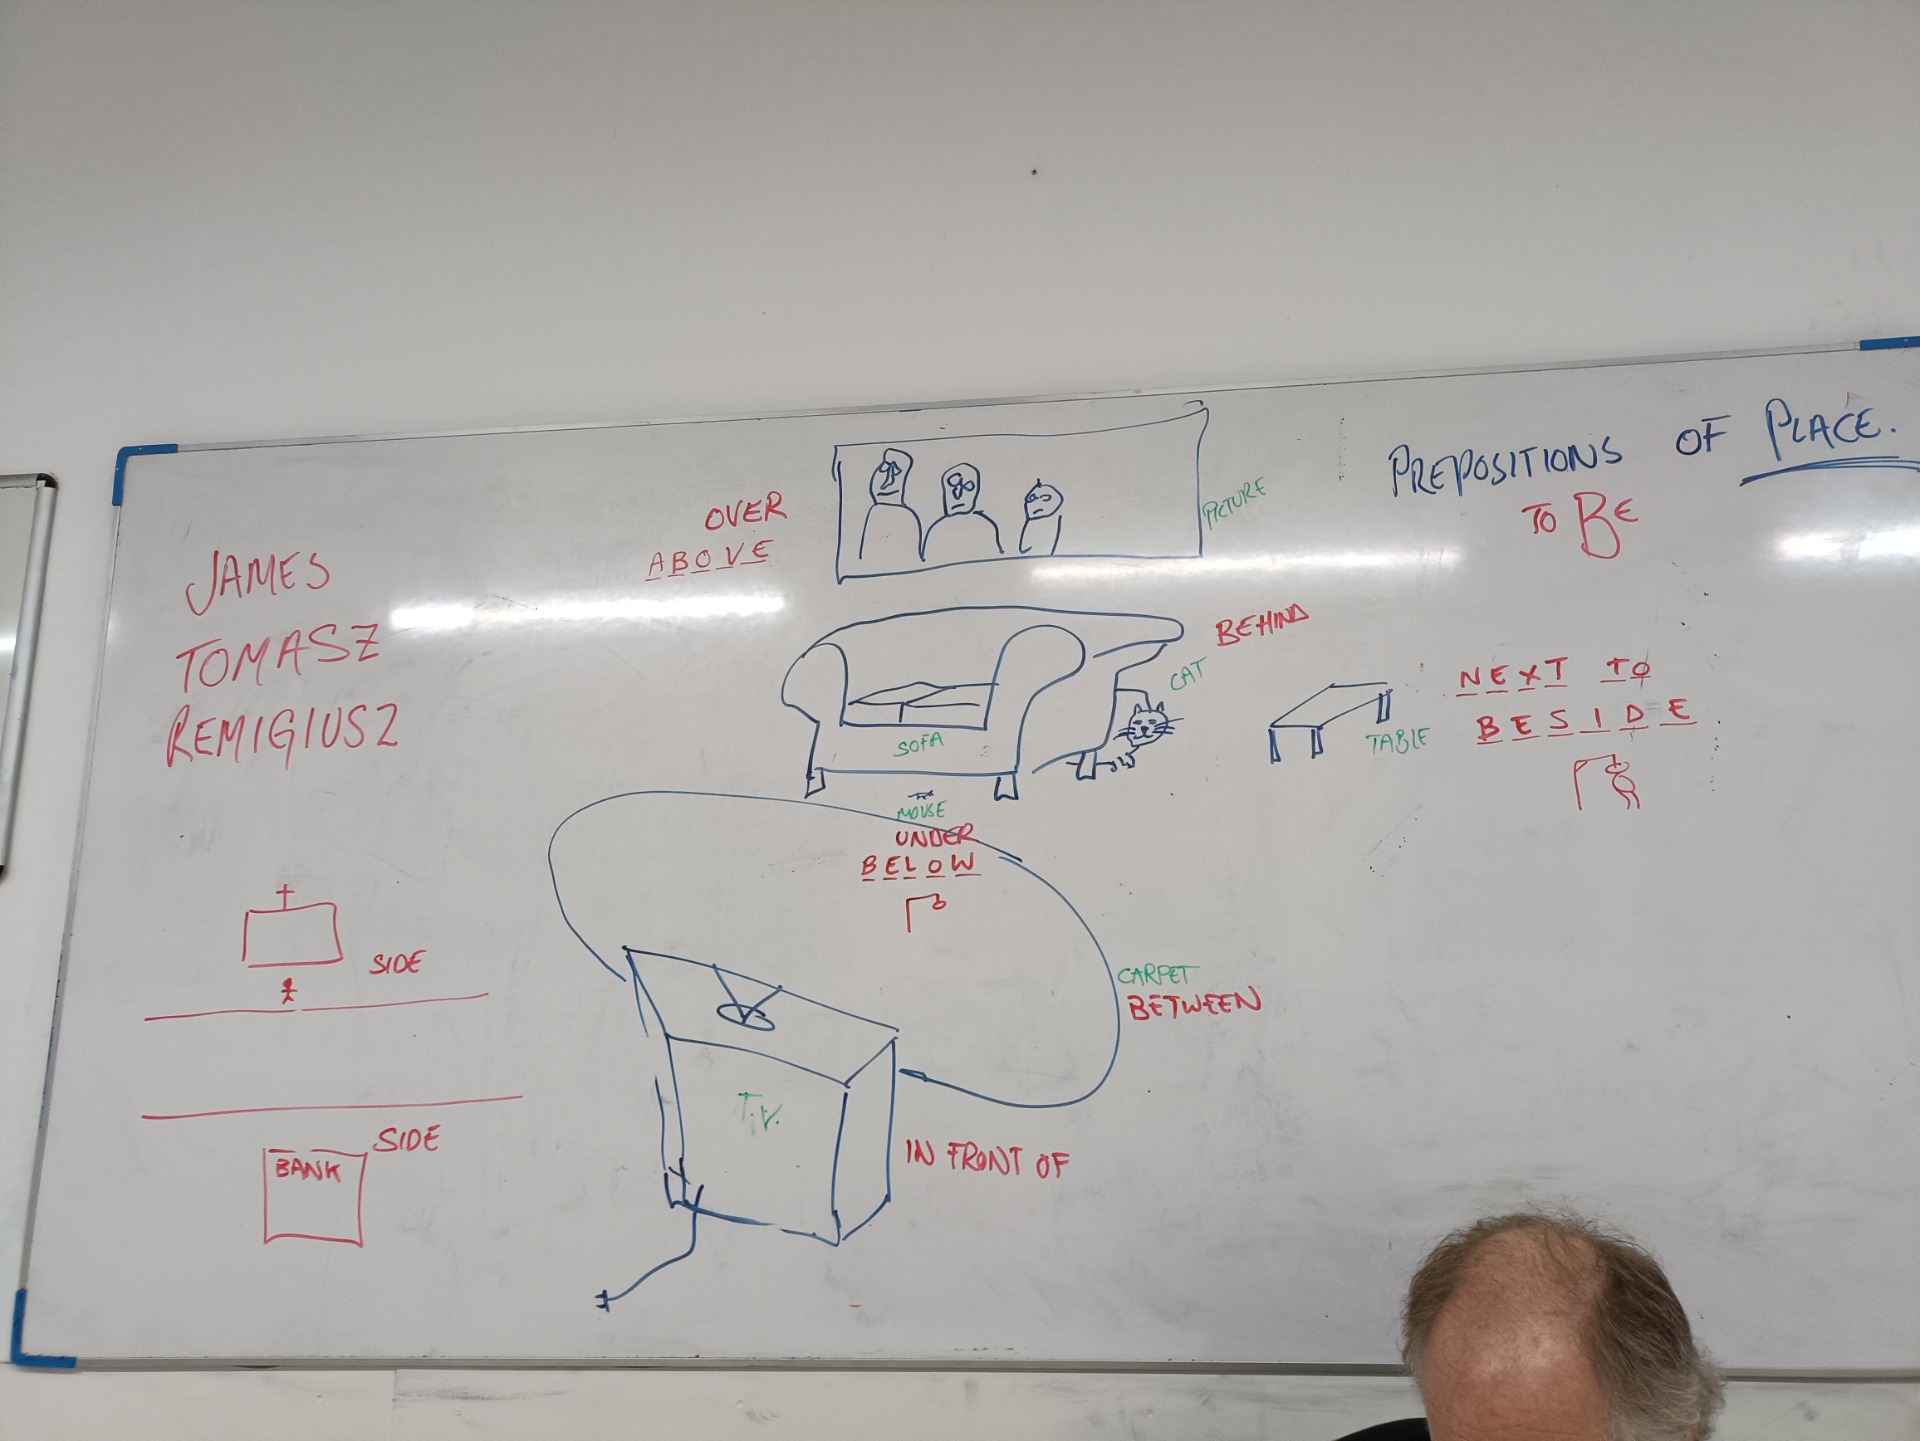 PREPOSITIONS OF PLACE.
TO BE
JAMES
TOMASZ
REMIGIUSZ
OVER
ABOVE
PICTURE
BEHIND
CAT
SOFA
TABLE
NEXT TO
BESIDE
MOUSE
UNDER
BELOW
CARPET
BETWEEN
T.V.
IN FRONT OF
SIDE
SIDE
BANK